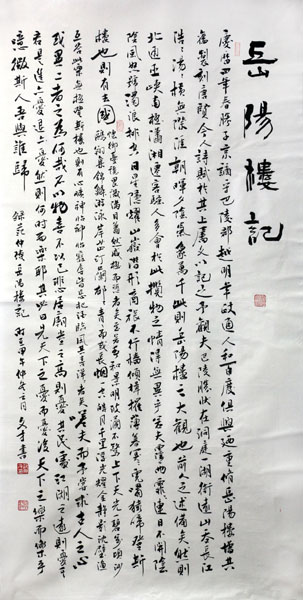 岳陽樓記
慶曆四年春滕子京謫守巴陵郡越明年政通人和百廢俱興乃重修岳陽樓增其
舊製刻唐賢今人詩賦於其上屬文以記之予觀夫巴陵勝狀在洞庭一湖銜遠山吞長江
浩浩湯湯橫無際涯朝暉夕陰氣象萬千此則岳陽樓之大觀也前人之述備矣然則
北通巫峽南極瀟湘遷客騷人多會於此攬物之情得無異乎若夫霪雨霏霏連月不開陰
風怒號濁浪排空日星隱耀山嶽潛形商旅不行檣傾楫摧薄暮冥冥虎嘯猿啼登斯
樓也則有去國懷鄉憂讒畏譏滿目蕭然感極而悲者矣至若春和景明波瀾不驚上下天光一碧萬頃沙
鷗翔集錦鱗游泳岸芷汀蘭郁郁青青而或長煙一空皓月千里浮光耀金靜影沈璧漁
歌互答此樂何極登斯樓也則有心曠神怡寵辱皆忘把酒臨風其喜洋洋者矣嗟夫予嘗求古仁人之心
或異二者之為何哉不以物喜不以己悲居廟堂之高則憂其民處江湖之遠則憂其
君是進亦憂退亦憂然則何時而樂耶其必曰先天下之憂而憂後天下之樂而樂乎
噫微斯人吾與誰歸 錄范仲淹岳陽樓記 甲午仲 之月 文才書